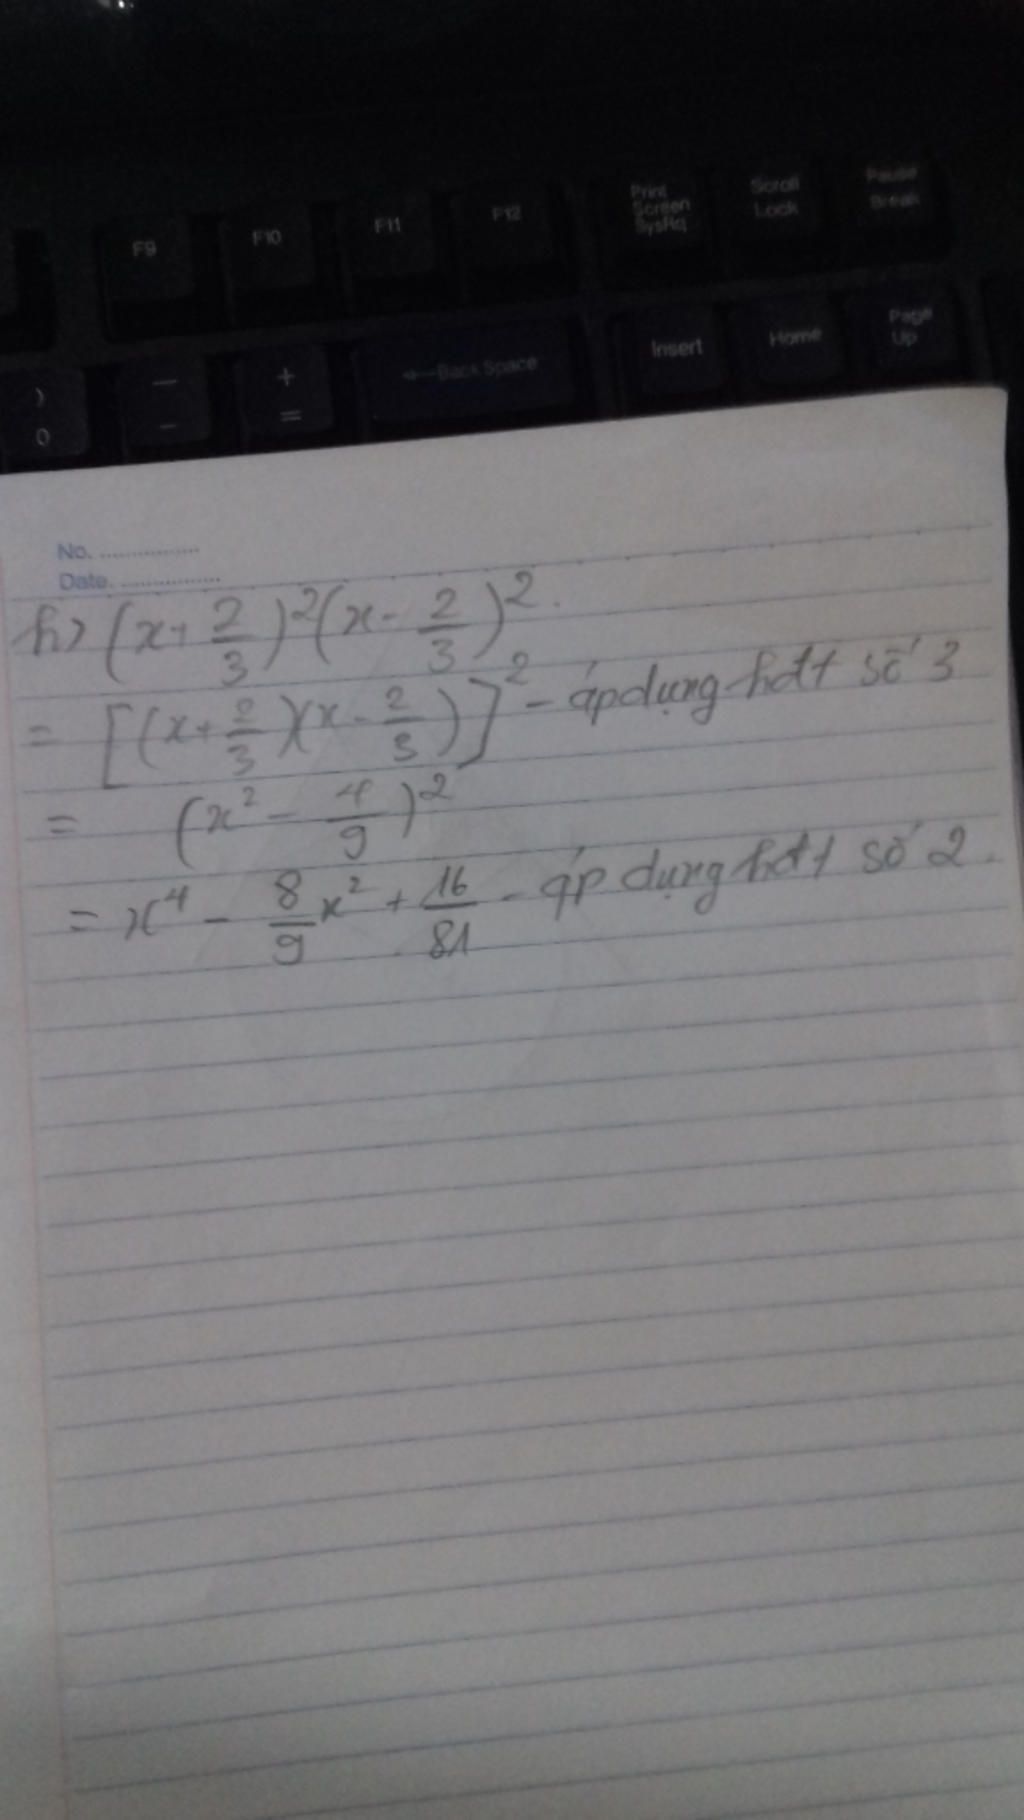 F9 F10 F11 F12 Print Screen SysRq Scroll Lock Pause Break
) 0 — - + = ←Back Space Insert Home Page Up
No. ................
Date. ................
h) (x+ 2/3)²(x- 2/3)².
= [(x+ 2/3)(x- 2/3)]² - áp dụng hdt số 3
= (x² - 4/9)²
= x⁴ - 8/9 x² + 16/81 - áp dụng hdt số 2.